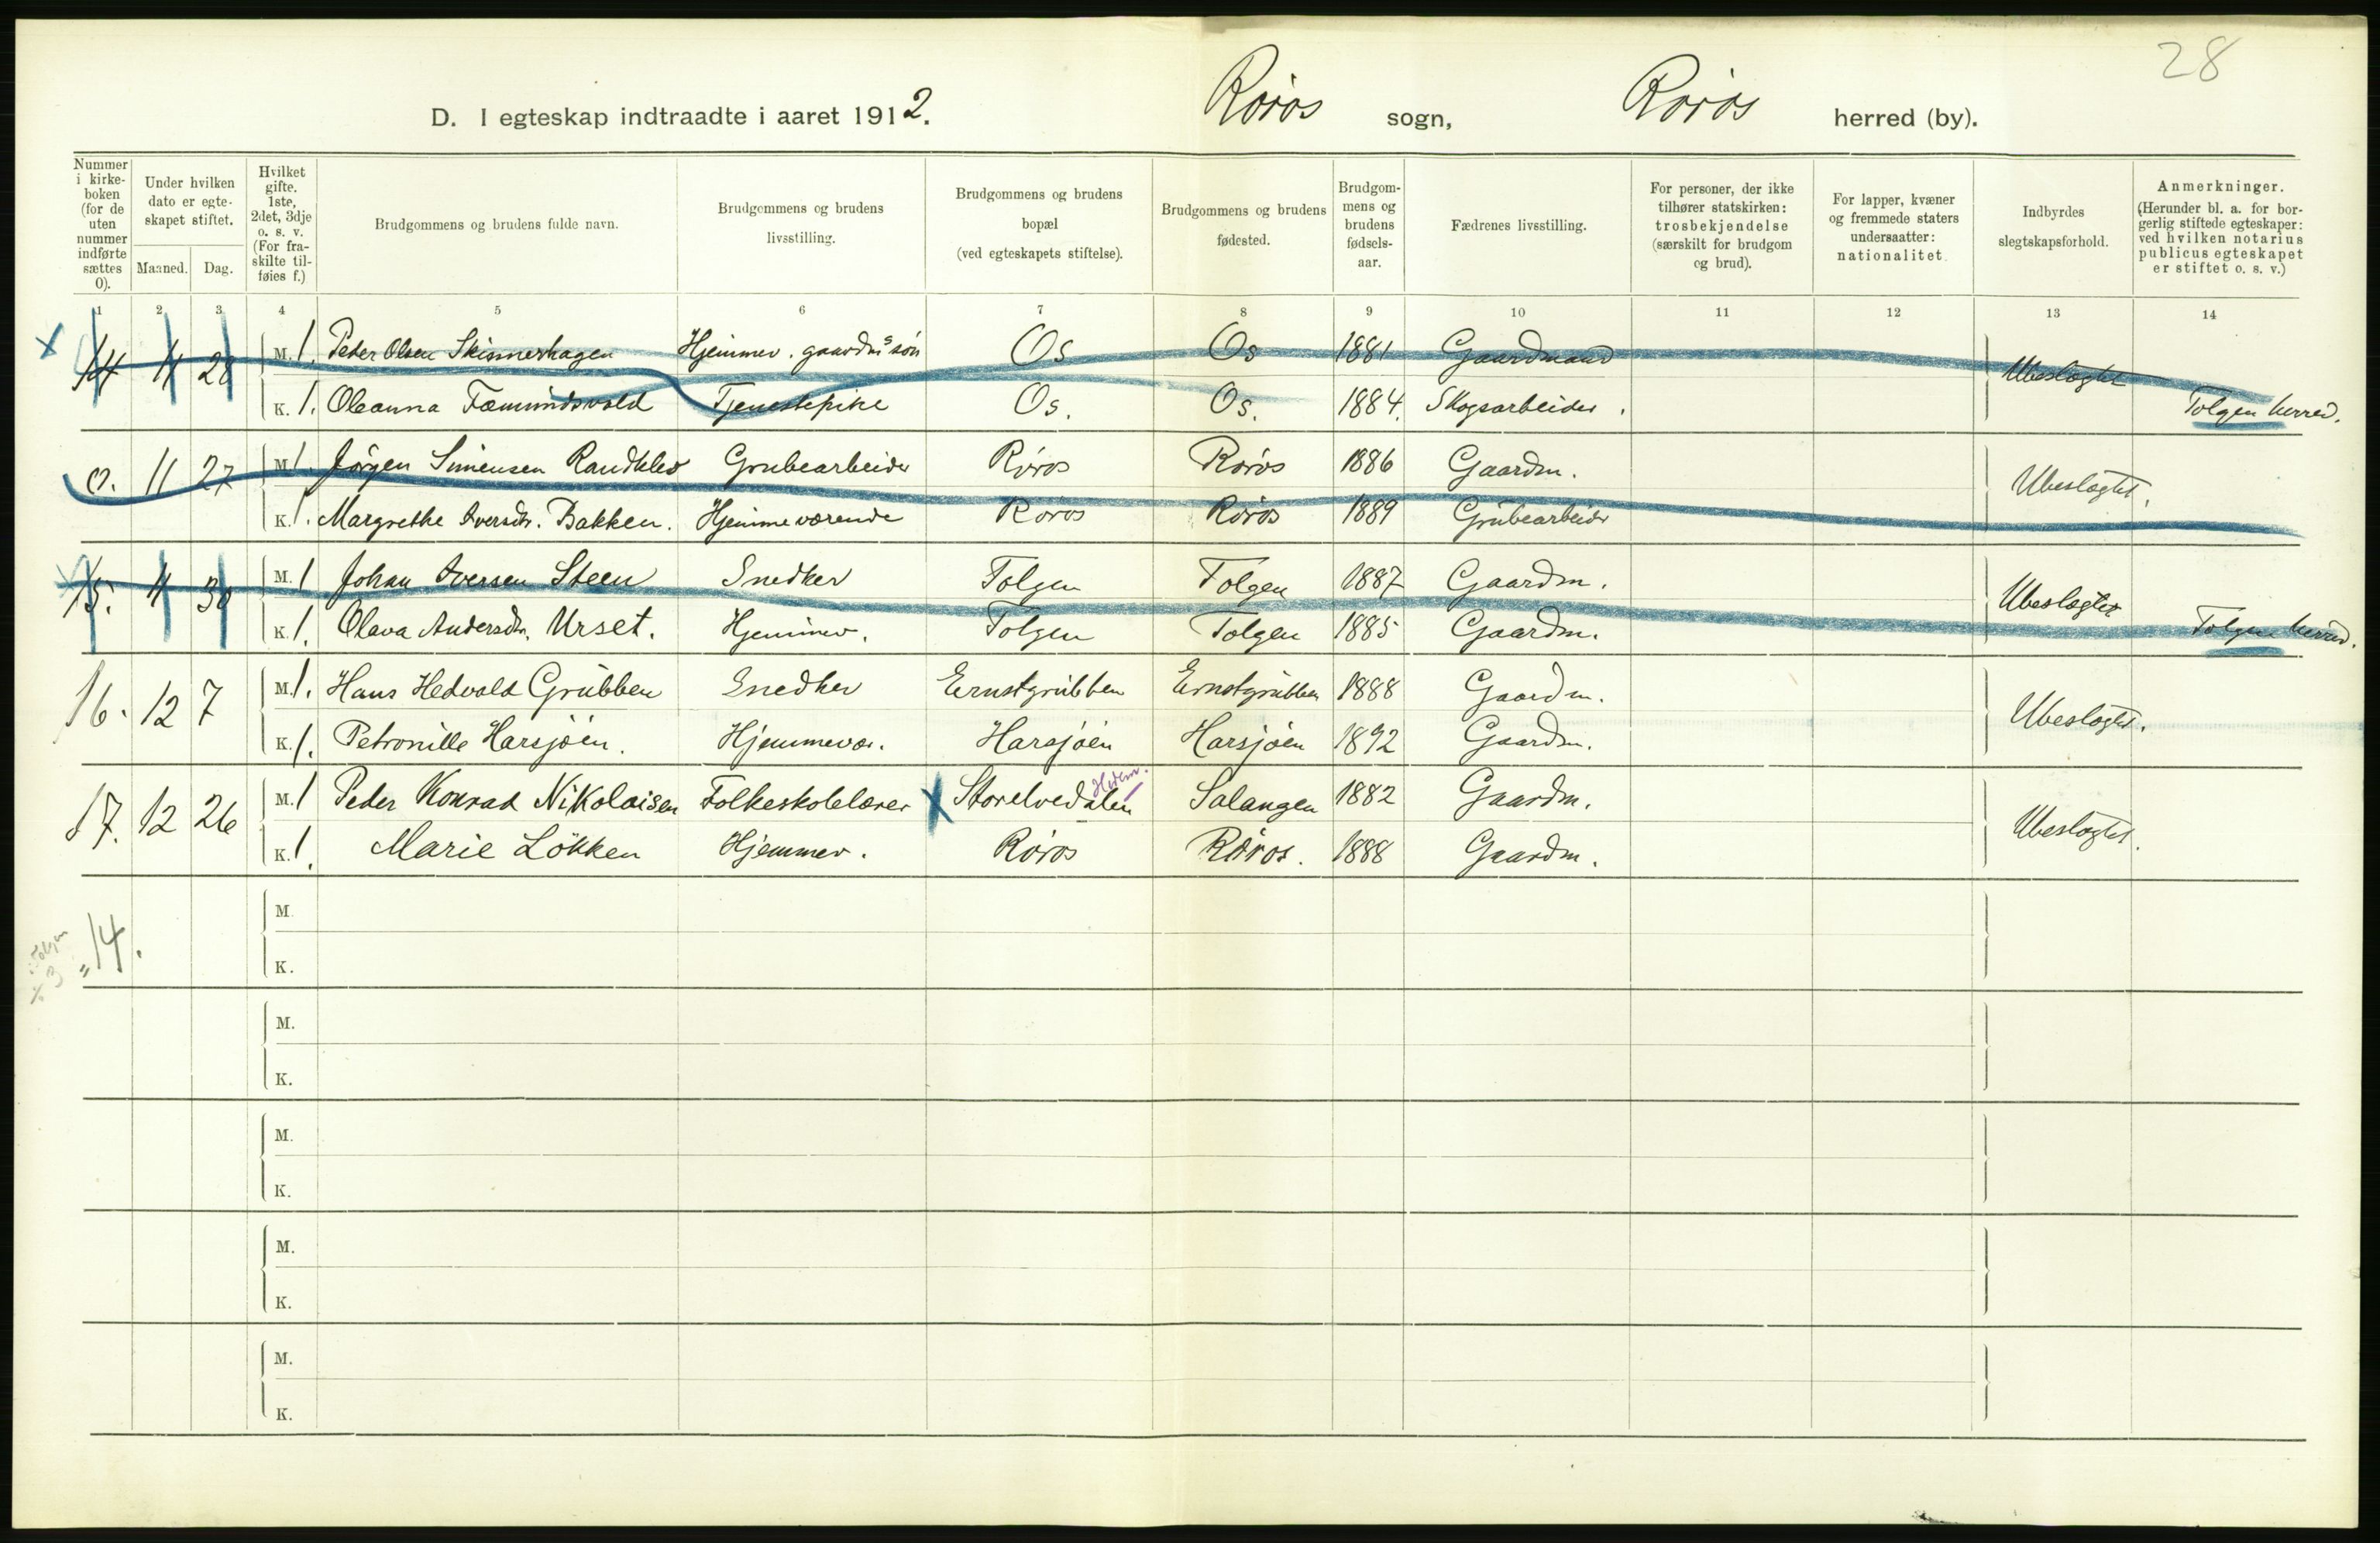 28
D. I egteskap indtraadte i aaret 1912. Röros sogn, Röros herred (by).
Nummer i kirke-boken (for de uten nummer indførte sættes 0).
Under hvilken dato er egte-skapet stiftet.
Maaned. Dag.
Hvilket gifte. 1ste, 2det, 3dje o. s. v. (For fra-skilte til-føies f.)
Brudgommens og brudens fulde navn.
Brudgommens og brudens livsstilling.
Brudgommens og brudens bopæl (ved egteskapets stiftelse).
Brudgommens og brudens fødested.
Brudgom-mens og brudens fødsels-aar.
Fædrenes livsstilling.
For personer, der ikke tilhører statskirken: trosbekjendelse (særskilt for brudgom og brud).
For lapper, kvæner og fremmede staters undersaatter: nationalitet
Indbyrdes slegtskapsforhold.
Anmerkninger. (Herunder bl. a. for bor-gerlig stiftede egteskaper: ved hvilken notarius publicus egteskapet er stiftet o. s. v.)
1 2 3 4 5 6 7 8 9 10 11 12 13 14
x 14 11 28 M. 1. Peder Olsen Skinnerhagen Hjemmev. gaardms sön Os Os 1881 Gaardmand Ubeslægtet
K. 1. Oleanna Fæmundsvold Tjenestepike Os. Os. 1884. Skogsarbeider. Tolgen herred.
0. 11 27 M. 1. Jörgen Simensen Randklev Grubearbeider Röros Röros 1886 Gaardm. Ubeslægtet.
K. 1. Margrethe Iversdtr. Bakken. Hjemmeværende Röros Röros 1889 Grubearbeider
15. 11 30 M. 1 Johan Iversen Steen Snedker Tolgen Tolgen 1887 Gaardm. Ubeslægtet
K. 1. Olava Andersdtr. Urset. Hjemmev. Tolgen Tolgen 1885 Gaardm. Tolgen herred.
16. 12 7 M. 1. Hans Hedvald Grubben Snedker Ernstgrubben Ernstgrubben 1888 Gaardm. Ubeslægtet.
K. 1. Petronille Harsjöen. Hjemmevær. Harsjöen Harsjöen 1892 Gaardm.
17. 12 26 M. 1 Peder Konrad Nikolaisen Folkeskolelærer x Storelvedalen Hedm. Salangen 1882 Gaardm. Ubeslægtet.
K. 1. Marie Lökken Hjemmev. Röros Röros. 1888 Gaardm.
M.
Tolgen
÷ 3 = 14.
K.
M.
K.
M.
K.
M.
K.
M.
K.